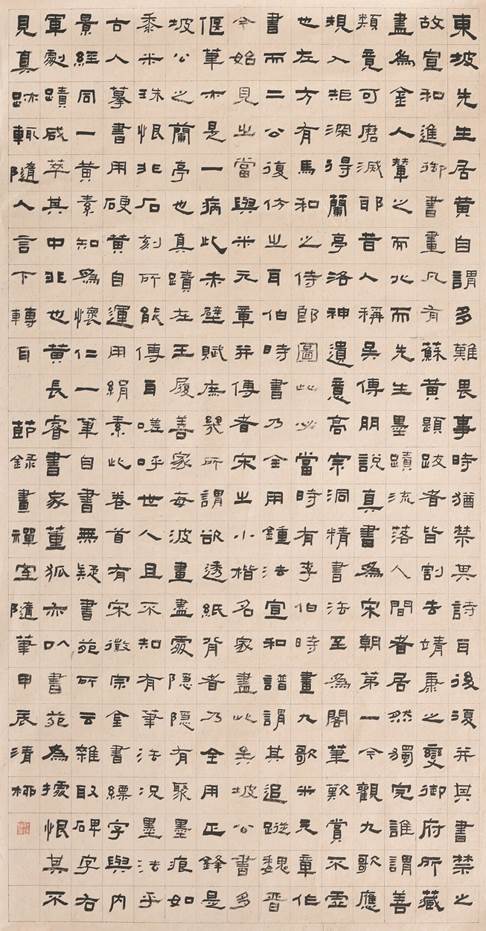 東坡先生居黄自謂多難畏事時猶禁其詩自後復并其書禁之
故宣和進御書畫凡有蘇黄題跋者皆割去靖康之變御府所藏
盡為金人輦之而北而先生墨蹟流落人間者居然獨完誰謂善
類竟可磨滅耶昔人稱吴傳朋說真書為宋朝第一今觀九歌應
規入矩深得蘭亭洛神遺意高宗洞精書法至為閣筆歎賞不虛
也左方有馬和之侍郎圖此必當時有李伯時畫九歌米元章作
書而二公復仿之耳伯時書乃全用鍾法宣和譜謂其追蹤魏晋
今始見之當與米元章并傳者宋之小楷名家盡此矣坡公書多
偃筆亦是一病此赤壁賦庶幾所謂欲透紙背者乃全用正鋒是
坡公之蘭亭也真蹟在王履善家每波畫盡處隱隱有聚墨痕如
黍米珠恨非石刻所能傳耳嗟呼世人且不知有筆法况墨法乎
古人摹書用硬黄自運用絹素此卷首有宋徽宗金書縹字與内
景經同一黄素知為懷仁一筆自書無疑書苑所云雜取碑字右
軍劇蹟咸萃其中非也黄長睿書家董狐亦以書苑為據恨其不
見真跡輒隨人言下轉耳 節録畫禪室隨筆甲辰清